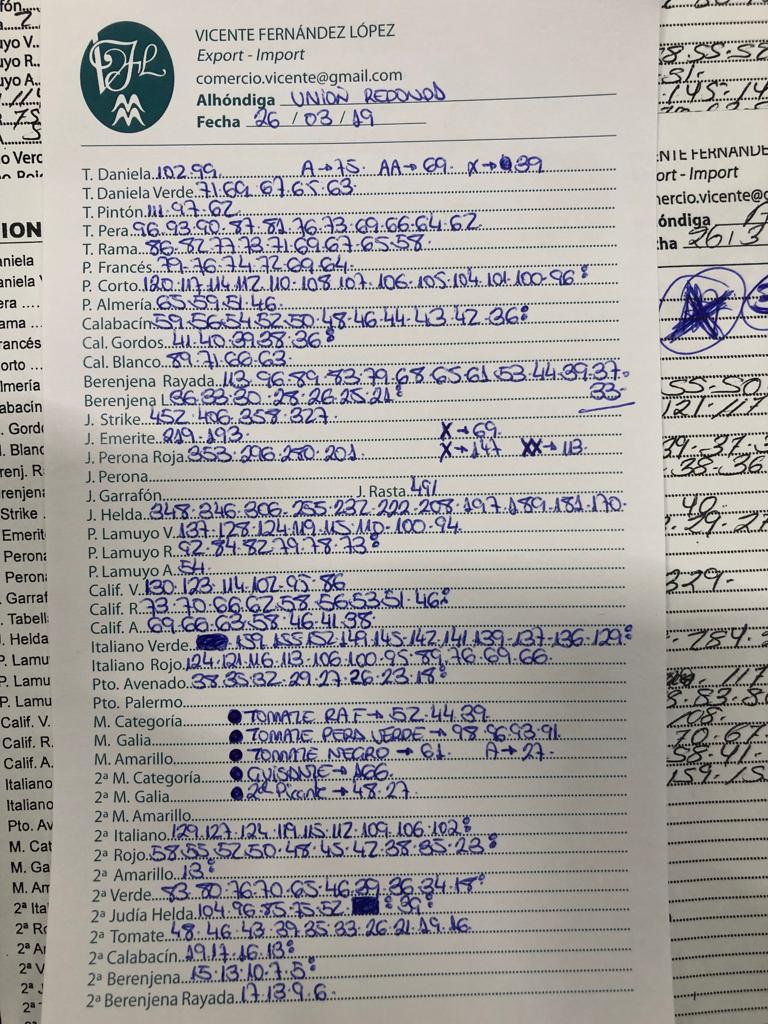 VICENTE FERNÁNDEZ LÓPEZ
Export - Import
comercio.vicente@gmail.com
Alhóndiga UNION REDONDA
Fecha 26 / 03 / 19
T. Daniela 102.99. A→75. AA→69. X→39
T. Daniela Verde 71.69.67.65.63.
T. Pintón 111.97.62.
T. Pera 96.93.90.87.81.76.73.69.66.64.62.
T. Rama 86.82.77.73.71.69.67.65.58.
P. Francés 79.76.74.72.69.64.
P. Corto 120.117.114.112.110.108.107.106.105.104.101.100.96
P. Almería 65.59.51.46.
Calabacín 59.56.54.52.50.48.46.44.43.42.36
Cal. Gordos 41.40.39.38.36
Cal. Blanco 89.71.66.63.
Berenjena Rayada 113.96.89.83.79.68.65.61.53.44.39.37.
33
Berenjena L 36.33.30.28.26.25.21
J. Strike 452.406.358.327.
J. Emerite 219.193. X→69.
J. Perona Roja 353.296.280.201. X→147 XX→113.
J. Perona
J. Garrafón J. Rasta 491
J. Helda 348.346.306.255.232.222.208.197.189.181.170.
P. Lamuyo V. 137.128.124.119.115.110.100.94.
P. Lamuyo R. 92.84.82.79.78.73
P. Lamuyo A. 54.
Calif. V. 130.123.114.102.95.86.
Calif. R. 73.70.66.62.58.56.53.51.46
Calif. A. 69.66.63.58.46.41.38.
Italiano Verde 159.155.152.149.145.142.141.139.137.136.129
Italiano Rojo 124.121.116.113.106.100.95.89.76.69.66.
Pto. Avenado 38.35.32.29.27.26.23.18
Pto. Palermo
M. Categoría TOMATE RAF→52.44.39.
M. Galia TOMATE PERA VERDE→98.96.93.91.
M. Amarillo TOMATE NEGRO→61. A→27.
2ª M. Categoría GUISANTE→166.
2ª M. Galia 2ª Picante→48.27.
2ª M. Amarillo
2ª Italiano 129.127.124.119.115.112.109.106.102
2ª Rojo 58.55.52.50.48.45.42.38.35.23
2ª Amarillo 13
2ª Verde 83.80.76.70.65.46.39.36.34.18
2ª Judía Helda 104.96.85.75.52. 39
2ª Tomate 48.46.43.39.35.33.26.21.19.16.
2ª Calabacín 19.17.16.13
2ª Berenjena 15.13.10.7.5
2ª Berenjena Rayada 17.13.9.6.